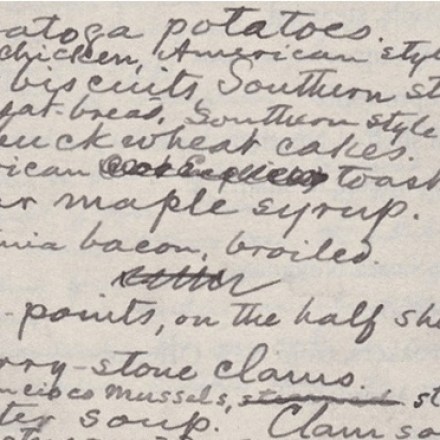 atoga potatoes.
chicken, American styl
biscuits, Southern st
at-bread, Southern style
uckwheat cakes.
rican toast
r maple syrup.
nia bacon, broiled.
-points, on the half sh
rry-stone clams.
ncisco mussels, steamed st
ter soup. Clam so